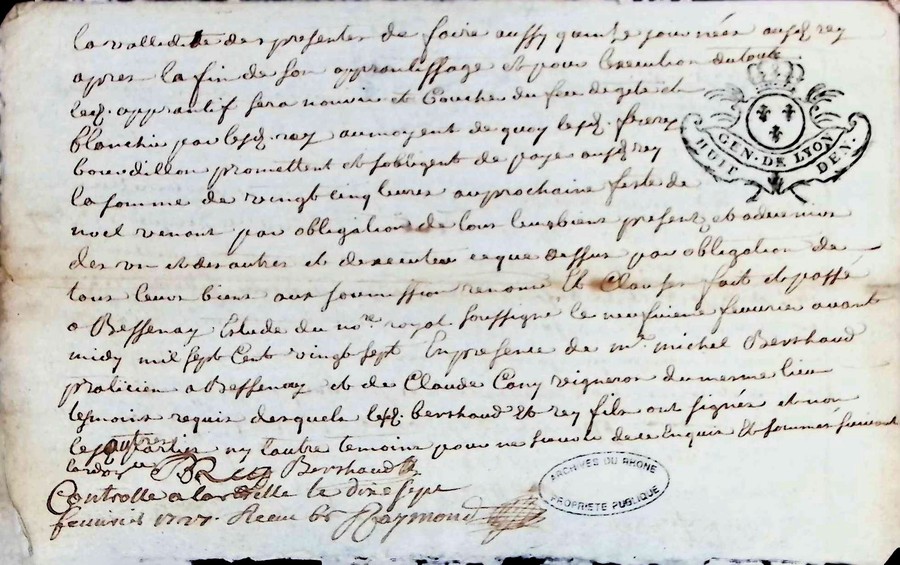 la vallidité des presentes de faire aussy quinze journées ausd. rey
apres la fin de son apprantissage et pour lexecution du toute
led. apprantif sera nourrie et Couche du feu de gite et
blanchie par lesd. rey aumoyent de quoy lesd. freres
bourdillon promettent et sobligent de paye ausd. rey
la somme de vingt cinq livres au prochaine feste de
noel venant par obligation de tous leurs biens present et advenirs
des un et des autres et dexecuter ce que dessus par obligation de
tous leurs biens aux soumission renon et Clauses fait et passé
a Bessenay Estude du nore royal soussigne le neufvieme feuvrier avant
midy mil sept Cent vingt sept En presence de mr. michel Berthaud
praticien a Bessenay et de Claude Cony vigneron du mesme lieu
tesmoins requis desquels lesd. berthaud Et rey fils ont signés et non
lesd autres parties ny l'autre temoins pour ne scavoir de ce Enquis Et sommés suivant
lardoce
BRey Berthaud
GEN. DE LYON
HUIT DEN.
Controlle a larbrelle le dixe sept
feuvrier 1727. Receu 6s Raymond
ARCHIVES DU RHONE
PROPRIETE PUBLIQUE